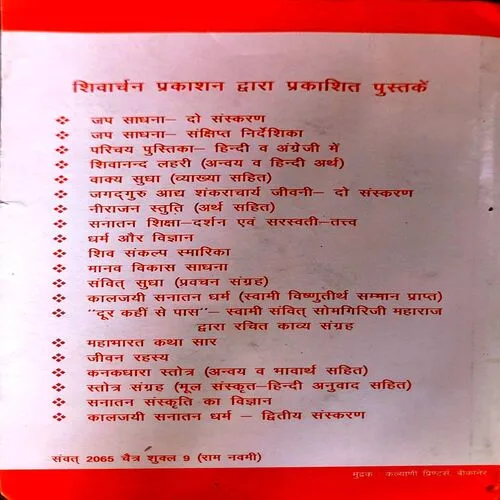 शिवार्चन प्रकाशन द्वारा प्रकाशित पुस्तकें
❖ जप साधना– दो संस्करण
❖ जप साधना– संक्षिप्त निर्देशिका
❖ परिचय पुस्तिका– हिन्दी व अंग्रेजी में
❖ शिवानन्द लहरी (अन्वय व हिन्दी अर्थ)
❖ वाक्य सुधा (व्याख्या सहित)
❖ जगद्गुरु आद्य शंकराचार्य जीवनी– दो संस्करण
❖ नीराजन स्तुति (अर्थ सहित)
❖ सनातन शिक्षा–दर्शन एवं सरस्वती–तत्त्व
❖ धर्म और विज्ञान
❖ शिव संकल्प स्मारिका
❖ मानव विकास साधना
❖ संवित् सुधा (प्रवचन संग्रह)
❖ कालजयी सनातन धर्म (स्वामी विष्णुतीर्थ सम्मान प्राप्त)
❖ "दूर कहीं से पास"– स्वामी संवित् सोमगिरिजी महाराज
द्वारा रचित काव्य संग्रह
❖ महाभारत कथा सार
❖ जीवन रहस्य
❖ कनकधारा स्तोत्र (अन्वय व भावार्थ सहित)
❖ स्तोत्र संग्रह (मूल संस्कृत–हिन्दी अनुवाद सहित)
❖ सनातन संस्कृति का विज्ञान
❖ कालजयी सनातन धर्म – द्वितीय संस्करण
संवत् 2065 चैत्र शुक्ल 9 (राम नवमी)
मुद्रक: कल्याणी प्रिण्टर्स, बीकानेर